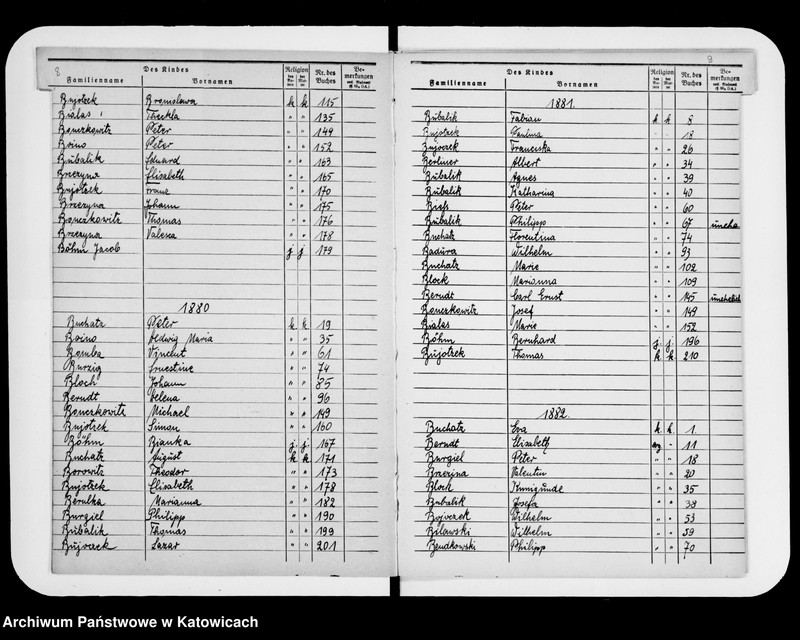 8
Des Kindes
Religion
Nr. des Buches
Be-merkungen
Familienname
Vornamen
Bujotzek Bronislawa k k 115
Bialas Theckla " " 135
Bonczkowitz Peter " " 149
Boino Peter " " 152
Bubalik Eduard " " 163
Brezyna Elisabeth " " 165
Bujotzek Franz " " 170
Brezyna Johann " " 175
Bonczkowitz Thomas " " 176
Brezyna Valeska " " 178
Böhm Jacob j j 179
1880
Buchatz Peter k. k. 19
Boino Hedwig Maria " " 35
Bomba Vincent " " 61
Burzig Ernestine " " 74
Bloch Johann " " 85
Berndt Helena " " 96
Bonczkowitz Michael " " 149
Bujotzek Simon " " 160
Böhm Bianka j. j. 167
Buchatz August k k 171
Borowitz Theodor " " 173
Bujotzek Elisabeth " " 178
Berulka Marianna " " 182
Burgiel Philipp " " 190
Bubalik Thomas " " 199
Bujoczek Lazar " " 201
9
Des Kindes
Religion
Nr. des Buches
Be-merkungen
Familienname
Vornamen
1881.
Bubalik Fabian k k 8
Bujotzek Paulina " " 18
Bujoczek Franciska " " 26
Berliner Albert " " 34
Bubalik Agnes " " 39
Bubalik Katharina " " 40
Peter " " 60
Bubalik Philipp " " 67 unehe
Buchatz Florentina " " 74
Badura Wilhelm " " 93
Buchatz Marie " " 102
Block Marianna " " 109
Berndt Carl Ernst " " 145 unehelich
Bonczkowitz Josef " " 149
Bialas Marie " " 152
Böhm Bernhard j. j. 196
Bujotzek Thomas k k 210
1882.
Buchatz Eva k. k. 1.
Berndt Elisabeth ev " 11
Burgiel Peter " " 18
Brzezina Valentin " " 20
Block Kunigunde " " 35
Bubalik Josefa " " 38
Bojoczek Wilhelm " " 53
Bilawski Wilhelm " " 59
Bendkowski Philipp " " 70
Archiwum Państwowe w Katowicach